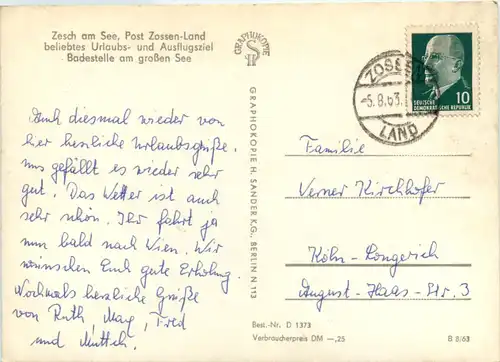 Zesch am See, Post Zossen-Land
beliebtes Urlaubs- und Ausflugsziel
Badestelle am großen See
Auch diesmal wieder von
hier herzliche Urlaubsgrüße.
Uns gefällt es wieder sehr
gut. Das Wetter ist auch
sehr schön. Ihr fahrt ja
nun bald nach Wien. Wir
wünschen Euch gute Erholung.
Nochmals herzliche Grüße
von Ruth, Fred
und Mutti.
GRAPHOKOPIE
GRAPHOKOPIE H. SANDER KG., BERLIN N 113
ZOSSEN
-5.8.63.
LAND
10
DEUTSCHE
DEMOKRATISCHE REPUBLIK
Familie
Verner Kirchhofer
Köln-Longerich
August-Haas-Str. 3
Best.-Nr. D 1373
Verbraucherpreis DM -,25
B 8/63